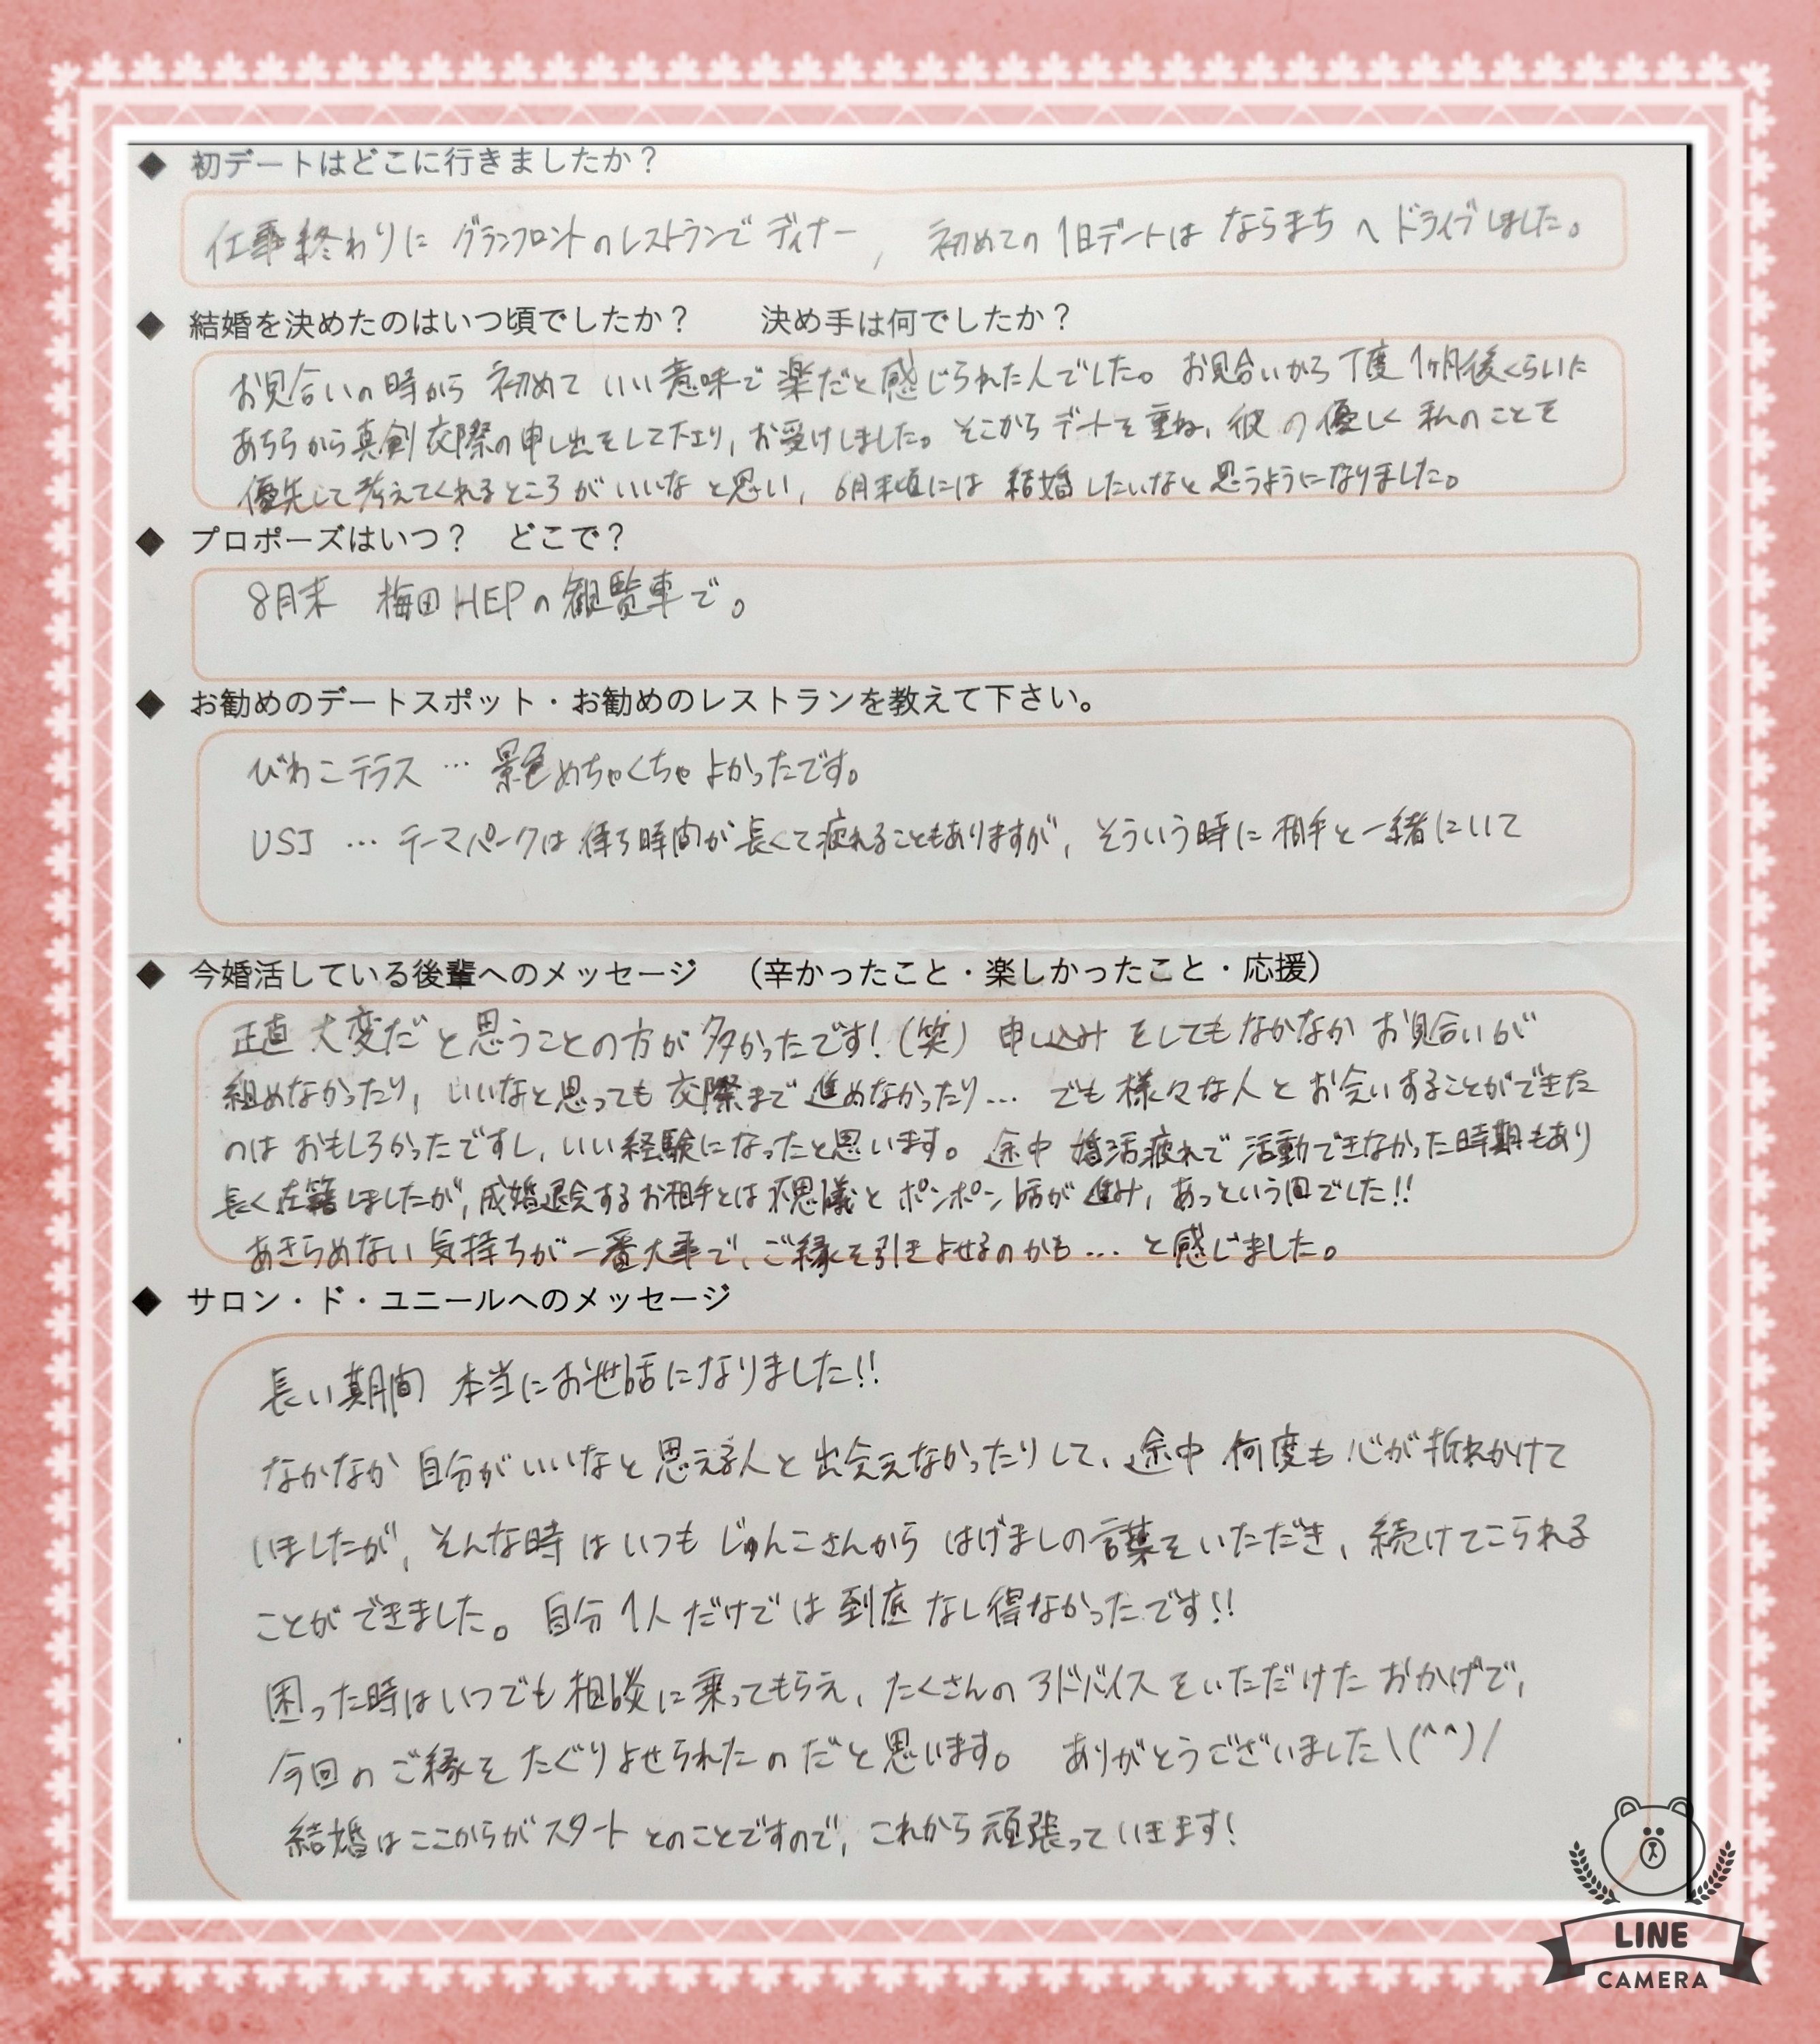 ◆ 初デートはどこに行きましたか？
仕事終わりに グランフロントのレストランで ディナー, 初めての 1日デートは ならまち へ ドライブしました。
◆ 結婚を決めたのはいつ頃でしたか？ 決め手は何でしたか？
お見合いの時から 初めて いい意味で 楽だと感じられた人でした。お見合いから 丁度 1ヶ月後くらいに
あちらから真剣交際の申し出をして下さり, お受けしました。そこからデートを重ね, 彼の優しく 私のことを
優先して考えてくれるところがいいな と思い, 6月末頃には 結婚したいなと思うようになりました。
◆ プロポーズはいつ？ どこで？
8月末 梅田HEPの観覧車で。
◆ お勧めのデートスポット・お勧めのレストランを教えて下さい。
びわこテラス … 景色めちゃくちゃ よかったです。
USJ … テーマパークは 待ち時間が 長くて疲れることもありますが, そういう時に 相手と一緒にいて
◆ 今婚活している後輩へのメッセージ （辛かったこと・楽しかったこと・応援）
正直 大変だ と思うことの方が 多かったです!(笑) 申し込み をしても なかなか お見合いが
組めなかったり, いいなと思っても 交際まで 進めなかったり… でも 様々な人と お会いすることができた
のは おもしろかったですし, いい経験になったと思います。途中 婚活疲れで 活動できなかった時期もあり
長く在籍しましたが, 成婚退会するお相手とは 不思議と ポンポン 話が 進み, あっという間でした!!
あきらめない 気持ちが 一番大事で, ご縁を引きよせるのかも… と感じました。
◆ サロン・ド・ユニールへのメッセージ
長い期間 本当にお世話になりました!!
なかなか 自分がいいなと 思える人と 出会えなかったりして, 途中 何度も 心が 折れかけて
いましたが, そんな時 は いつも じゅんこさんから はげましの言葉を いただき, 続けてこられる
ことが できました。自分 1人 だけで は 到底 なし得なかったです!!
困った時はいつでも 相談に 乗ってもらえ, たくさんの アドバイス を いただけた おかげで,
今回の ご縁を たぐりよせられたの だと思います。 ありがとうございました\(^^)/
結婚は ここからがスタート とのことですので, これから 頑張って いきます!
LINE
CAMERA